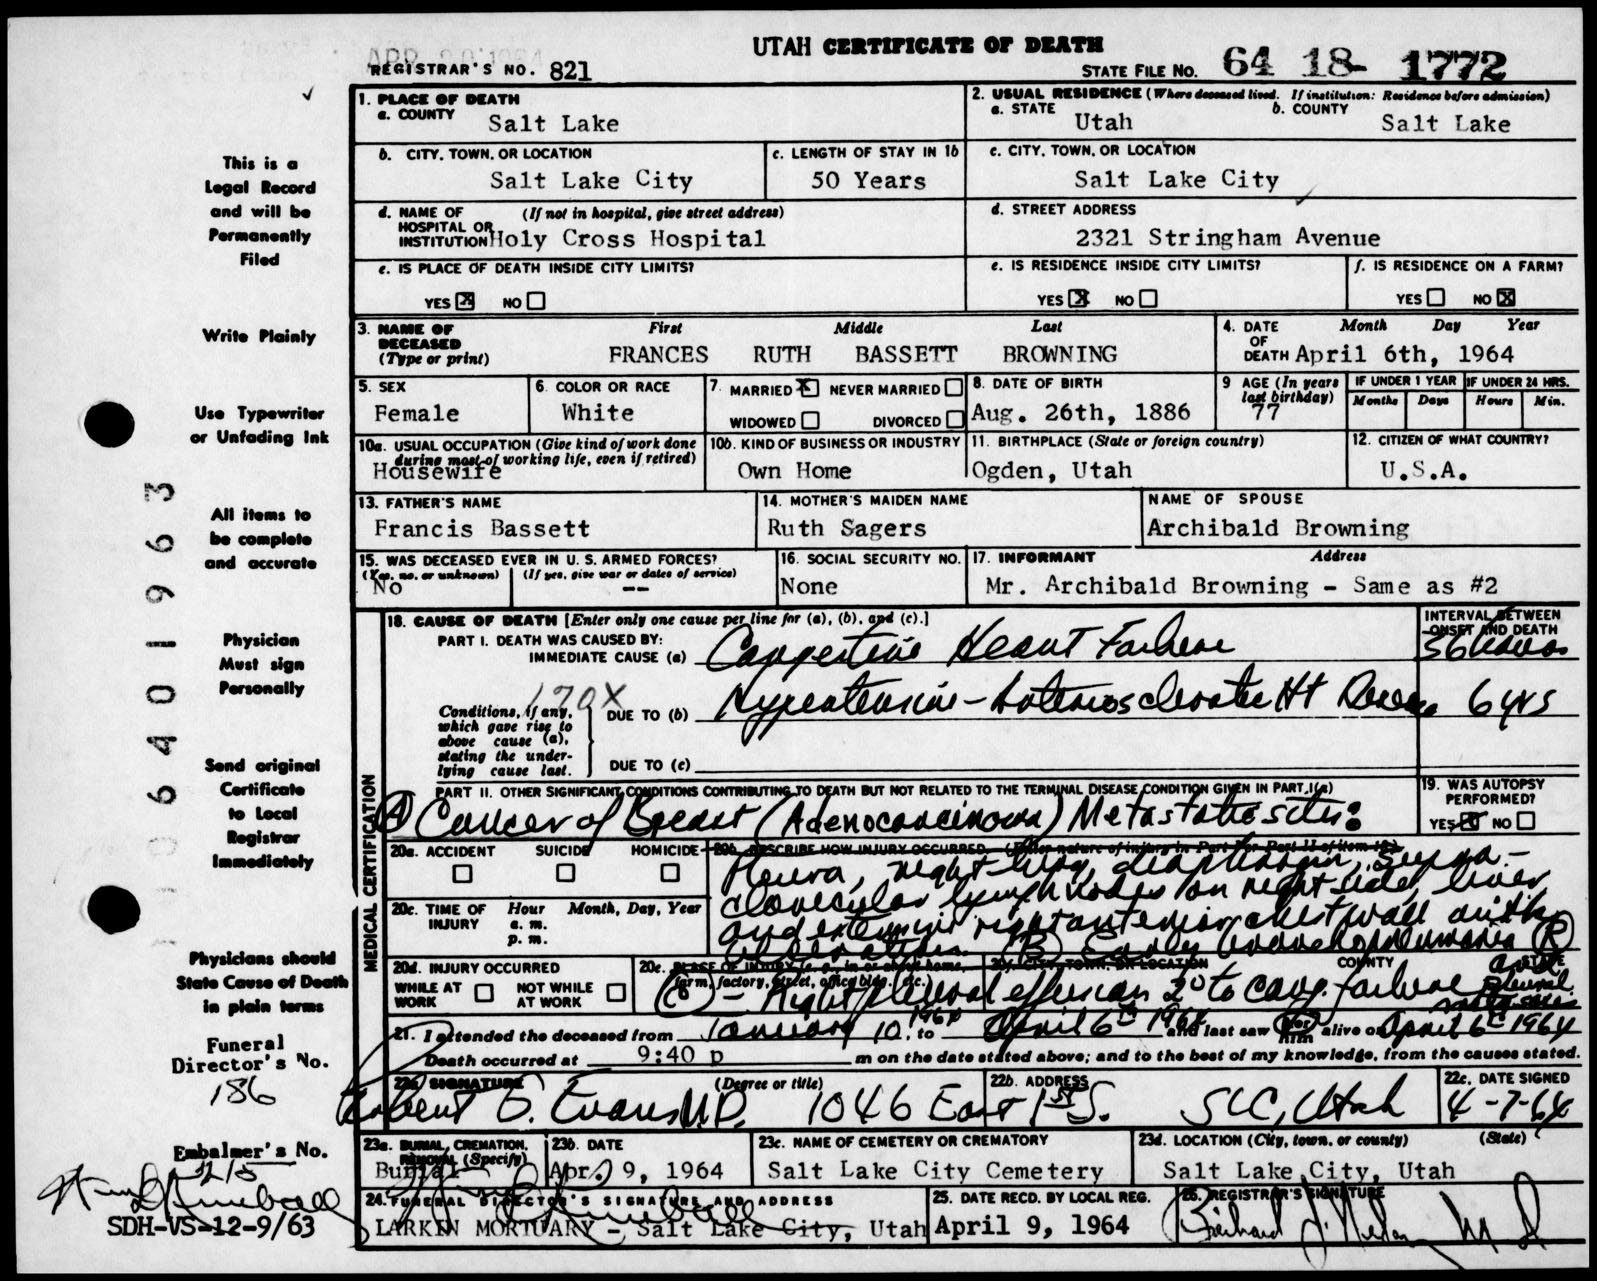 UTAH CERTIFICATE OF DEATH
REGISTRAR'S NO. 821
STATE FILE NO. 64 18- 1772
1. PLACE OF DEATH
a. COUNTY Salt Lake
2. USUAL RESIDENCE (Where deceased lived. If institution: Residence before admission)
a. STATE Utah b. COUNTY Salt Lake
b. CITY, TOWN, OR LOCATION Salt Lake City
c. LENGTH OF STAY IN 1b 50 Years
c. CITY, TOWN, OR LOCATION Salt Lake City
d. NAME OF HOSPITAL OR INSTITUTION (If not in hospital, give street address) Holy Cross Hospital
d. STREET ADDRESS 2321 Stringham Avenue
e. IS PLACE OF DEATH INSIDE CITY LIMITS?
YES X NO
e. IS RESIDENCE INSIDE CITY LIMITS?
YES X NO
f. IS RESIDENCE ON A FARM?
YES NO X
3. NAME OF DECEASED (Type or print) First Middle Last
FRANCES RUTH BASSETT BROWNING
4. DATE OF DEATH Month Day Year
April 6th, 1964
5. SEX Female
6. COLOR OR RACE White
7. MARRIED X NEVER MARRIED
WIDOWED DIVORCED
8. DATE OF BIRTH Aug. 26th, 1886
9 AGE (In years last birthday) 77
IF UNDER 1 YEAR Months Days
IF UNDER 24 HRS. Hours Min.
10a. USUAL OCCUPATION (Give kind of work done during most of working life, even if retired) Housewife
10b. KIND OF BUSINESS OR INDUSTRY Own Home
11. BIRTHPLACE (State or foreign country) Ogden, Utah
12. CITIZEN OF WHAT COUNTRY? U.S.A.
13. FATHER'S NAME Francis Bassett
14. MOTHER'S MAIDEN NAME Ruth Sagers
NAME OF SPOUSE Archibald Browning
15. WAS DECEASED EVER IN U. S. ARMED FORCES?
(Yes, no, or unknown) No (If yes, give war or dates of service) --
16. SOCIAL SECURITY NO. None
17. INFORMANT Address
Mr. Archibald Browning - Same as #2
18. CAUSE OF DEATH [Enter only one cause per line for (a), (b), and (c).]
INTERVAL BETWEEN ONSET AND DEATH
PART I. DEATH WAS CAUSED BY:
IMMEDIATE CAUSE (a) Congestive Heart Failure 36 hours
170X
Conditions, if any, which gave rise to above cause (a), stating the underlying cause last.
DUE TO (b) Hypertensive - Arteriosclerotic Ht Disease 6 yrs
DUE TO (c)
PART II. OTHER SIGNIFICANT CONDITIONS CONTRIBUTING TO DEATH BUT NOT RELATED TO THE TERMINAL DISEASE CONDITION GIVEN IN PART I(a)
(A) Cancer of Breast (Adenocarcinoma) Metastatic sites:
19. WAS AUTOPSY PERFORMED?
YES X NO
20a. ACCIDENT SUICIDE HOMICIDE
20b. DESCRIBE HOW INJURY OCCURRED. (Enter nature of injury in Part I or Part II of item 18.)
Pleura, right lung, diaphragm, Supra-
clavicular lymph nodes on right side, liver
and extensive right anterior chest wall with
ulceration (B) Early bronchopneumonia (R)
20c. TIME OF INJURY Hour Month, Day, Year
a. m.
p. m.
20d. INJURY OCCURRED
WHILE AT WORK NOT WHILE AT WORK
20e. PLACE OF INJURY (e. g., in or about home, farm, factory, street, office bldg., etc.)
20f. CITY, TOWN, OR LOCATION COUNTY STATE
(C) - Right pleural effusion 2° to cong. failure and pleural metastasis
21. I attended the deceased from January 10, 1964 to April 6th 1964 and last saw her him alive on April 6th 1964
Death occurred at 9:40 p m on the date stated above; and to the best of my knowledge, from the causes stated.
22a. SIGNATURE (Degree or title) Robert S. Evans M.D.
22b. ADDRESS 1046 East 1st S. SLC, Utah
22c. DATE SIGNED 4-7-64
23a. BURIAL, CREMATION, REMOVAL (Specify) Burial
23b. DATE Apr. 9, 1964
23c. NAME OF CEMETERY OR CREMATORY Salt Lake City Cemetery
23d. LOCATION (City, town, or county) (State) Salt Lake City, Utah
24. FUNERAL DIRECTOR'S SIGNATURE AND ADDRESS
LARKIN MORTUARY - Salt Lake City, Utah
25. DATE RECD. BY LOCAL REG. April 9, 1964
26. REGISTRAR'S SIGNATURE
MEDICAL CERTIFICATION
This is a
Legal Record
and will be
Permanently
Filed
Write Plainly
Use Typewriter
or Unfading Ink
All items to
be complete
and accurate
Physician
Must sign
Personally
Send original
Certificate
to Local
Registrar
Immediately
Physicians should
State Cause of Death
in plain terms
Funeral
Director's No.
186
Embalmer's No.
SDH-VS-12-9/63